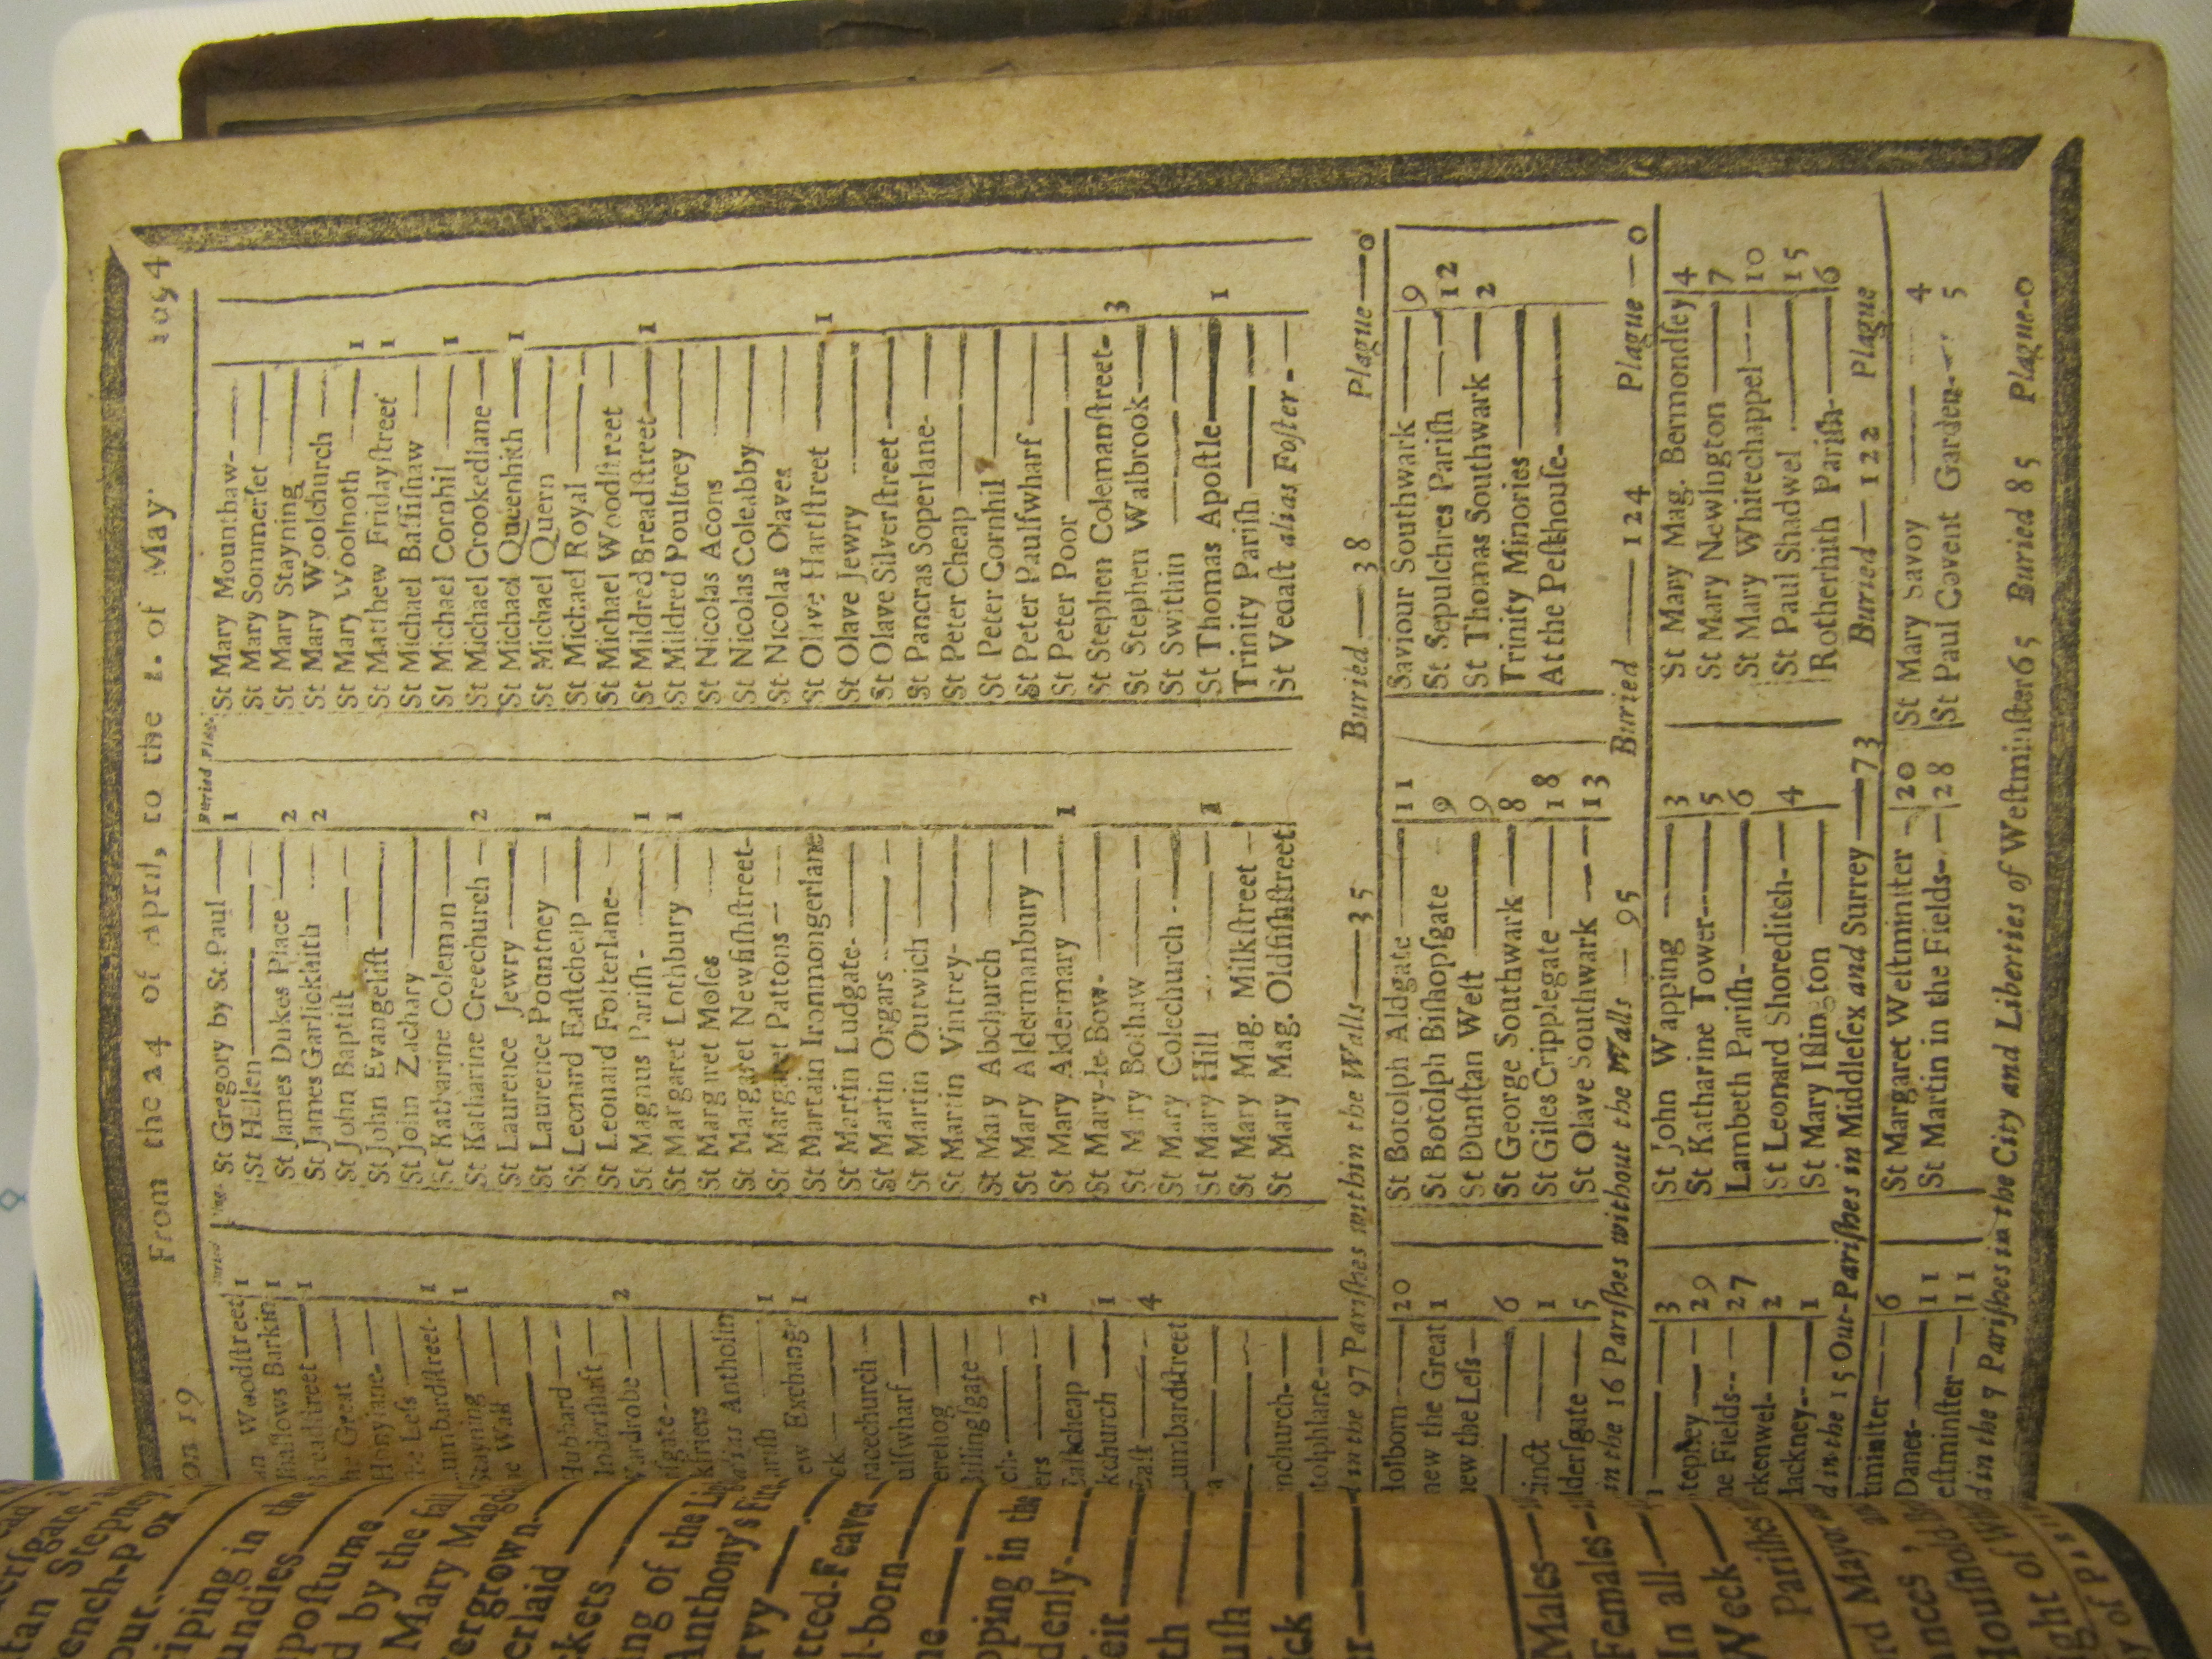 on 19 From the 24 of April, to the 1. of May. 1694
Buried Plag.
Woodstreet 1
Barkin 1
Breadstreet — 1
the Great —
Honylane-
the Less —
Lumbardstreet- 1
Stayning — 1
the Wall —
Hubbard —
Undershaft —
Wardrobe — 2
—
—
alias Antholin
Parish — 1
Exchange 1
ck —
racechurch —
ulswharf —
erehog —
Billingsgate —
ch- —
ers — 2
Eastcheap —
kchurch — 1
East — 4
Lumbardstreet
a —
nchurch-
tolphlane-
St Gregory by St. Paul — 1
St Hellen —
St James Dukes Place — 2
St James Garlickhith 2
St John Baptist —
St John Evangelist —
St John Zachary —
St Katharine Coleman —
St Katharine Creechurch — 2
St Laurence Jewry —
St Laurence Pountney — 1
St Leonard Eastcheap —
St Leonard Fosterlane-
St Magnus Parish- — 1
St Margaret Lothbury — 1
St Margaret Moses
St Margaret Newfishstreet-
St Margaret Pattons —
St Martain Ironmongerlane
St Martin Ludgate- —
St Martin Orgars —
St Martin Outwich —
St Martin Vintrey- —
St Mary Abchurch —
St Mary Aldermanbury —
St Mary Aldermary — 1
St Mary-le-Bow- —
St Mary Bothaw —
St Mary Colechurch - —
St Mary Hill — 1
St Mary Mag. Milkstreet —
St Mary Mag. Oldfishstreet
St Mary Mounthaw- —
St Mary Sommerset —
St Mary Stayning —
St Mary Woolchurch —
St Mary Woolnoth — 1
St Matthew Fridaystreet 1
St Michael Bassishaw —
St Michael Cornhil — 1
St Michael Crookedlane —
St Michael Queenhith — 1
St Michael Quern —
St Michael Royal —
St Michael Woodstreet —
St Mildred Breadstreet — 1
St Mildred Poultrey —
St Nicolas Acons —
St Nicolas Coleabby —
St Nicolas Olaves —
St Olave Hartstreet — 1
St Olave Jewry —
St Olave Silverstreet —
St Pancras Soperlane- —
St Peter Cheap —
St Peter Cornhil —
St Peter Paulswharf —
St Peter Poor —
St Stephen Colemanstreet- 3
St Stephen Walbrook —
St Swithin —
St Thomas Apostle — 1
Trinity Parish —
St Vedast alias Foster - —
d in the 97 Parishes within the Walls — 35 Buried — 38 Plague — 0
Holborn — 20
new the Great 1
new the Less —
— 6
inct — 1
ldersgate — 5
St Botolph Aldgate — 11
St Botolph Bishopsgate 9
St Dunstan West — 9
St George Southwark — 8
St Giles Cripplegate — 18
St Olave Southwark — 13
Saviour Southwark — 9
St Sepulchres Parish — 12
St Thomas Southwark — 2
Trinity Minories —
At the Pesthouse- —
in the 16 Parishes without the Walls — 95 Buried — 124 Plague — 0
— 3
tepney — 29
ne Fields-- 27
rkenwel- — 2
Hackney-- 1
St John Wapping — 3
St Katharine Tower — 5
Lambeth Parish- — 6
St Leonard Shoreditch- — 4
St Mary Islington —
St Mary Mag. Bermondsey 4
St Mary Newington — 7
St Mary Whitechappel — 10
St Paul Shadwel — 15
Rotherhith Parish- — 6
d in the 15 Out-Parishes in Middlesex and Surrey — 73 Buried — 122 Plague
tminster — 6
Danes- — 11
estminster — 11
St Margaret Westminster - 20
St Martin in the Fields- — 28
St Mary Savoy — 4
St Paul Covent Garden- 5
d in the 7 Parishes in the City and Liberties of Westminster 65 Buried 85 Plague-0
tan Stepney
ench-Pox
out
riping in the
undies
postume
d by the fall
Mary Magd
ergrown
erlaid
ckets
ing of the
Anthony's Fire
rvy
tted-Feaver
l-born
ne
pping in the
denly-
eit
th
ush
ick
er
Males
Females
In all
Week
Parishes
rd Mayor
ances,
Houshold
ight of